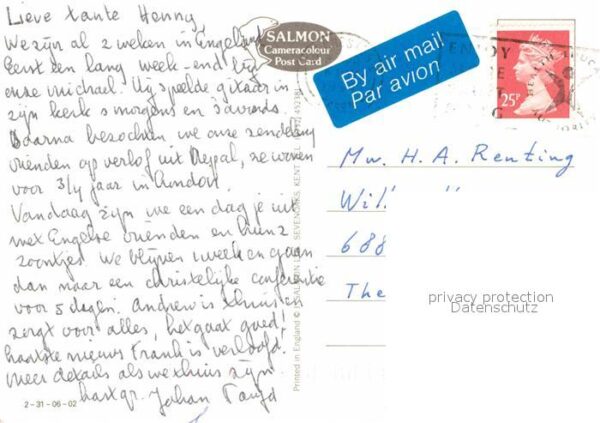 Lieve tante Henny,
We zijn al 2 weken in Engeland
Eerst een lang week-end bij
onze Michael. Hij speelde gitaar in
zijn kerk 's morgens en 's avonds.
Daarna bezochten we onze zendeling
vrienden op verlof uit Nepal, ze wonen
voor 3/4 jaar in London.
Vandaag zijn we een dagje uit
met Engelse vrienden en hun 2
zoontjes. We blijven 1 week en gaan
dan naar een christelijke conferentie
voor 5 dagen. Andrew is thuis en
zorgt voor alles, het gaat goed!
laatste nieuws Frank is verloofd!
Meer details als we thuis zijn
hart. gr. Johan
2-31-06-02
SALMON
Cameracolour
Post Card
Printed in England © J. SALMON LTD., SEVENOAKS, KENT
By air mail
Par avion
25P
Mw. H. A. Renting
Wil
688
The
privacy protection
Datenschutz